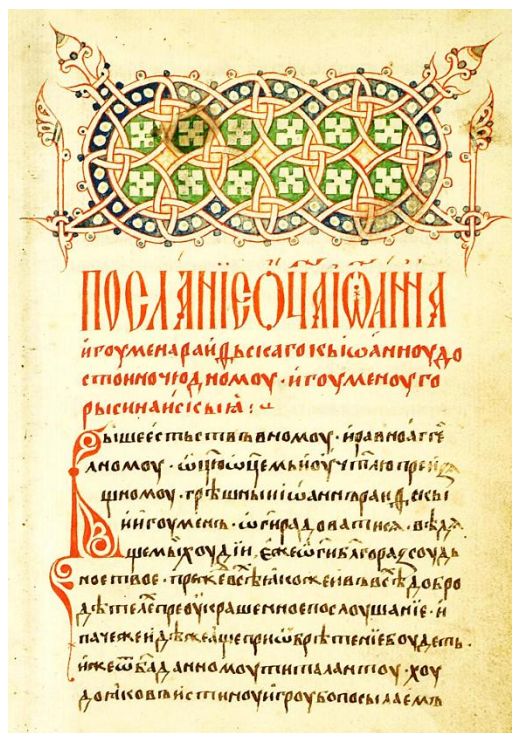 ПОСЛАНЇЕ ѾЦА ІѠАННА
игоумена раиѳьскаго къ іѡанноу до
стоиночюдномоу · игоуменоу го
ры синаискыѧ :
Вышеестьствъвномоу · и равноагге
лномоу · ѿцю ѿцемь и оучітлю преи
щномоу · грѣшныи іѡаннъ раиѳскы
и игоуменъ · ѡ г҃и радоватисѧ · вѣдѧ
ще мы хоудїи, еже ѡ г҃и благоразсоудь
ное твое · преже всѣх ꙗкоже и въ всѣх добро
дѣтелех преоукрашенное послоушанїе · и
паче же идѣже аще приѡбрѣтенїе боудеть ·
иже ѿ б҃а данномоу ти талантоу · хоу
дои ꙗко въистиноу и гроубо посылаемъ